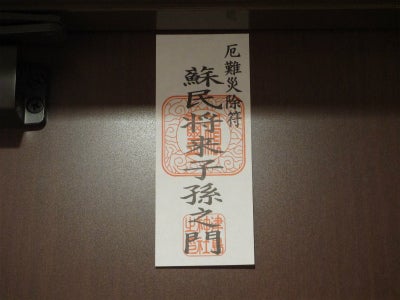 厄難災除符
蘇民将来子孫之門